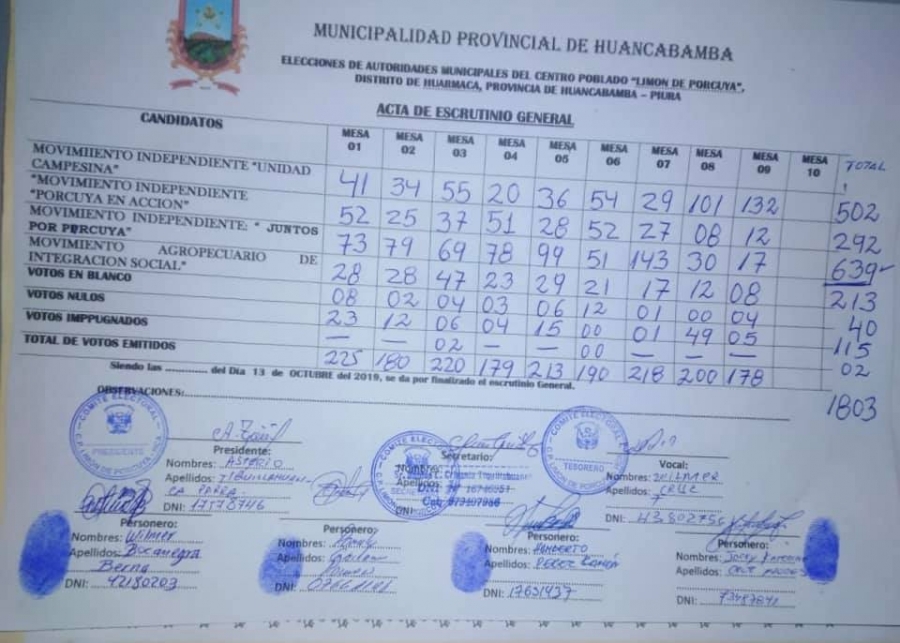 MUNICIPALIDAD PROVINCIAL DE HUANCABAMBA
ELECCIONES DE AUTORIDADES MUNICIPALES DEL CENTRO POBLADO "LIMON DE PORCUYA",
DISTRITO DE HUARMACA, PROVINCIA DE HUANCABAMBA – PIURA
ACTA DE ESCRUTINIO GENERAL
CANDIDATOS MESA 01 MESA 02 MESA 03 MESA 04 MESA 05 MESA 06 MESA 07 MESA 08 MESA 09 MESA 10 TOTAL
MOVIMIIENTO INDEPENDIENTE "UNIDAD
CAMPESINA" 41 34 55 20 36 54 29 101 132 502
"MOVIMIENTO INDEPENDIENTE
"PORCUYA EN ACCION" 52 25 37 51 28 52 27 08 12 292
MOVIMIENTO INDEPENDIENTE: " JUNTOS
POR PERCUYA" 73 79 69 78 99 51 143 30 17 639
MOVIMIENTO AGROPECUARIO DE
INTEGRACION SOCIAL" 28 28 47 23 29 21 17 12 08 213
VOTOS EN BLANCO 08 02 04 03 06 12 01 00 04 40
VOTOS NULOS 23 12 06 04 15 00 01 49 05 115
VOTOS IMPPUGNADOS — — 02 — — 00 — — — 02
TOTAL DE VOTOS EMITIDOS 225 180 220 179 213 190 218 200 178 1803
Siendo las ............. del Día 13 de OCTUBRE del 2019, se da por finalizado el escrutinio General.
OBSERVACIONES:
COMITE ELECTORAL
PRESIDENTE
COMITE ELECTORAL
COMITE ELECTORAL
TESORERO
Presidente:
Nombres: ASTERIO
Apellidos:
DNI:
Secretario:
Nombres:
Apellidos:
DNI
Vocal:
Nombres:
Apellidos: CRUZ
DNI:
Personero:
Nombres: Wilmer
Apellidos: Bocanegra
Berna
DNI: 42180203
Personero:
Nombres:
Apellidos:
DNI:
Personero:
Nombres:
Apellidos: PEREZ
DNI: 17631437
Personero:
Nombres:
Apellidos:
DNI: